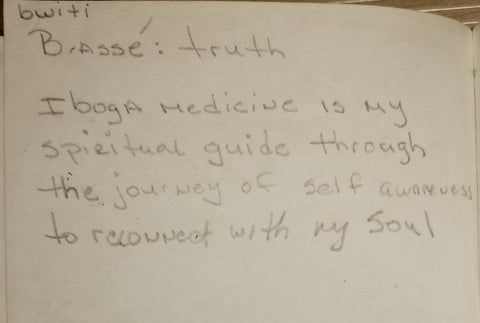 bwiti
Bassé: truth
Iboga medicine is my
spiritual guide through
the journey of self awareness
to reconnect with my Soul